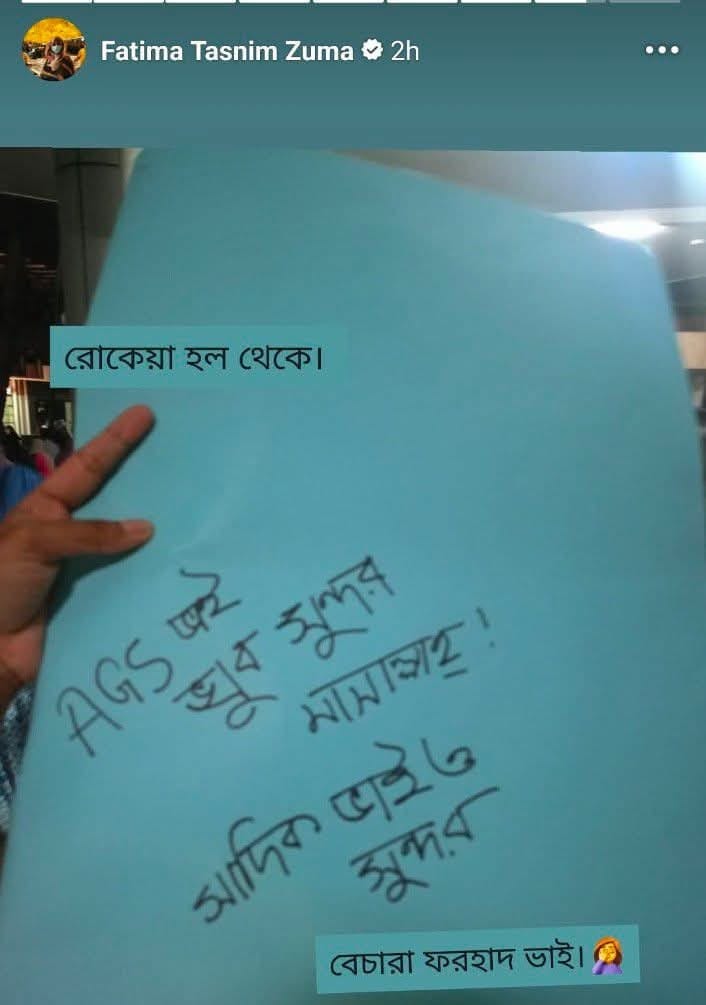 Fatima Tasnim Zuma 2h
রোকেয়া হল থেকে।
AGS ভাই
খুব সুন্দর
মাসাল্লাহ!
সাদিক ভাইও
সুন্দর
বেচারা ফরহাদ ভাই।🤦‍♀️